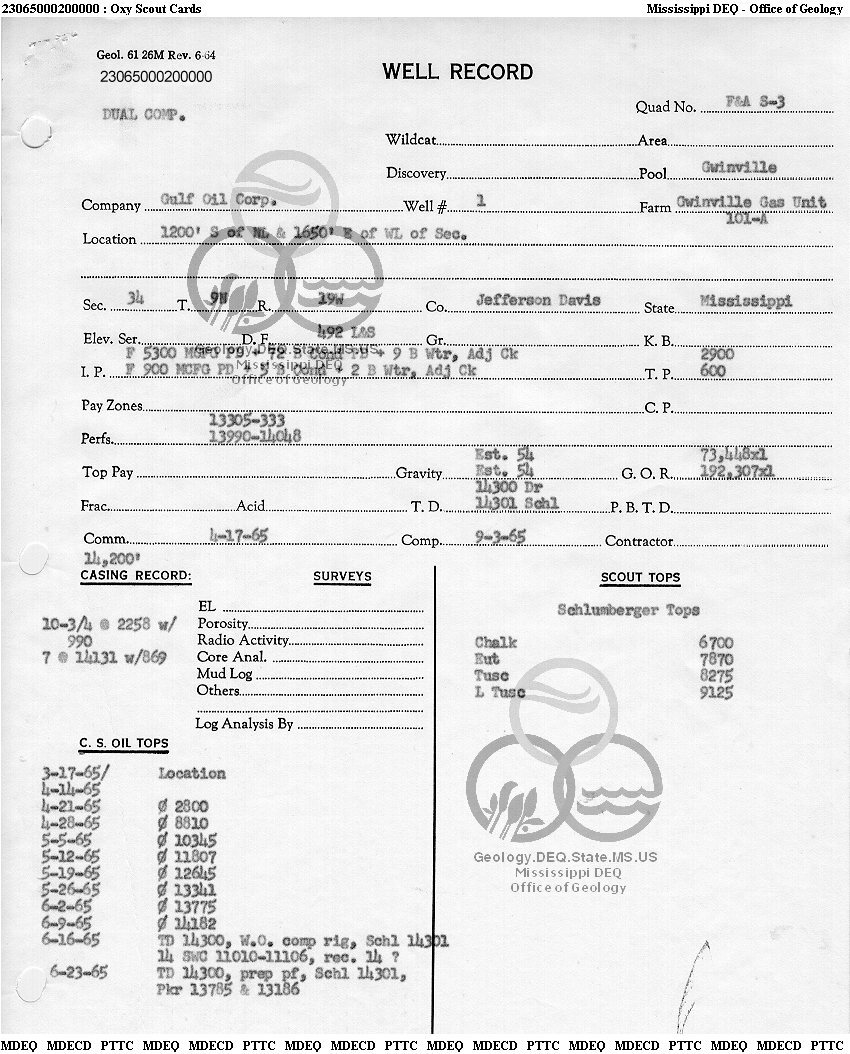 23065000200000 : Oxy Scout Cards Mississippi DEQ - Office of Geology
Geol. 61 26M Rev. 6-64
23065000200000
WELL RECORD
DUAL COMP.
Quad No. F&A S-3
Wildcat Area
Discovery Pool Gwinville
Company Gulf Oil Corp. Well # 1 Farm Gwinville Gas Unit
101-A
Location 1200' S of NL & 1650' E of WL of Sec.
Sec. 34 T. 9N R. 19W Co. Jefferson Davis State Mississippi
Elev. Ser. D. F. 492 L&S Gr. K. B.
F 5300 MCFG PD + 72 B Cond PD + 9 B Wtr, Adj Ck 2900
I. P. F 900 MCFG PD + 5 B Cond + 2 B Wtr, Adj Ck T. P. 600
Pay Zones C. P.
13305-333
Perfs. 13990-14048
Est. 54 73,448x1
Top Pay Gravity Est. 54 G. O. R. 192,307x1
14300 Dr
Frac. Acid T. D. 14301 Schl P. B. T. D.
Comm. 4-17-65 Comp. 9-3-65 Contractor
14,200'
CASING RECORD: SURVEYS SCOUT TOPS
EL
Schlumberger Tops
10-3/4 @ 2258 w/ Porosity
990 Radio Activity Chalk 6700
7 @ 14131 w/869 Core Anal. Eut 7870
Mud Log Tusc 8275
Others L Tusc 9125
Log Analysis By
C. S. OIL TOPS
3-17-65/ Location
4-14-65
4-21-65 Ø 2800
4-28-65 Ø 8810
5-5-65 Ø 10345
5-12-65 Ø 11807
5-19-65 Ø 12645
5-26-65 Ø 13341
6-2-65 Ø 13775
6-9-65 Ø 14182
6-16-65 TD 14300, W.O. comp rig, Schl 14301
14 SWC 11010-11106, rec. 14 ?
6-23-65 TD 14300, prep pf, Schl 14301,
Pkr 13785 & 13186
Geology.DEQ.State.MS.US
Mississippi DEQ
Office of Geology
Geology.DEQ.State.MS.US
Mississippi DEQ
Office of Geology
MDEQ MDECD PTTC MDEQ MDECD PTTC MDEQ MDECD PTTC MDEQ MDECD PTTC MDEQ MDECD PTTC MDEQ MDECD PTTC